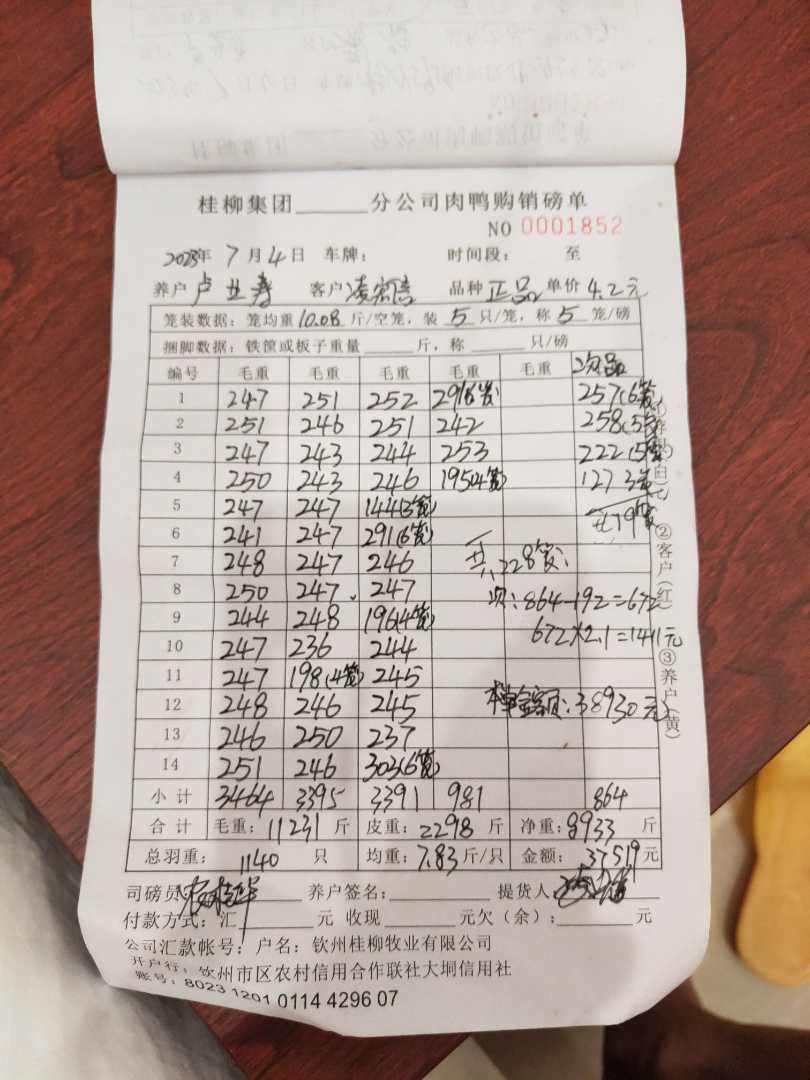 桂柳集团______分公司肉鸭购销磅单
NO 0001852
2023年 7月4日 车牌: 时间段: 至
养户 卢业寿 客户 凌 信 品种 正品 单价 4.2元
笼装数据: 笼均重 10.08 斤/空笼, 装 5 只/笼, 称 5 笼/磅
捆脚数据: 铁筐或板子重量______斤, 称______只/磅
编号 毛重 毛重 毛重 毛重 毛重 次品
1 247 251 252 291(6笼) 257(6笼)
2 251 246 251 242 258(5笼)
3 247 243 244 253 222(5笼)
4 250 243 246 195(4笼) 127 3笼
5 247 247 144(3笼) 共19笼
6 241 247 291(6笼)
7 248 247 246 共228笼;
8 250 247 247 次:864-192=672
9 244 248 196(4笼) 672×2.1=1411元
10 247 236 244
11 247 198(4笼) 245
12 248 246 245 本单金额:38930元
13 246 250 237
14 251 246 303(6笼)
小计 3464 3395 3391 981 864
合计 毛重: 11231 斤 皮重: 2298 斤 净重: 8933 斤
总羽重: 1140 只 均重: 7.83 斤/只 金额: 37519 元
司磅员: 养户签名: 提货人:
付款方式: 汇______元 收现______元欠(余):______元
公司汇款帐号: 户名: 钦州桂柳牧业有限公司
开户行: 钦州市区农村信用合作联社大垌信用社
账号: 8023 1201 0114 4296 07
白(七)
②客户(红)
③养户(黄)